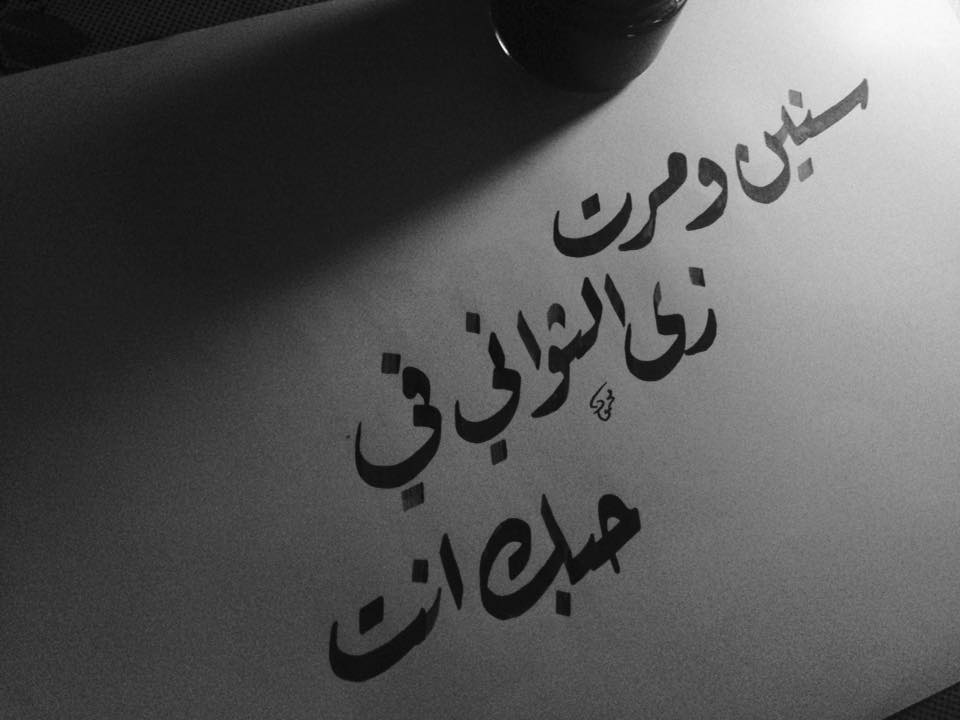 سنين ومرت
زى الثواني في
حبك انت